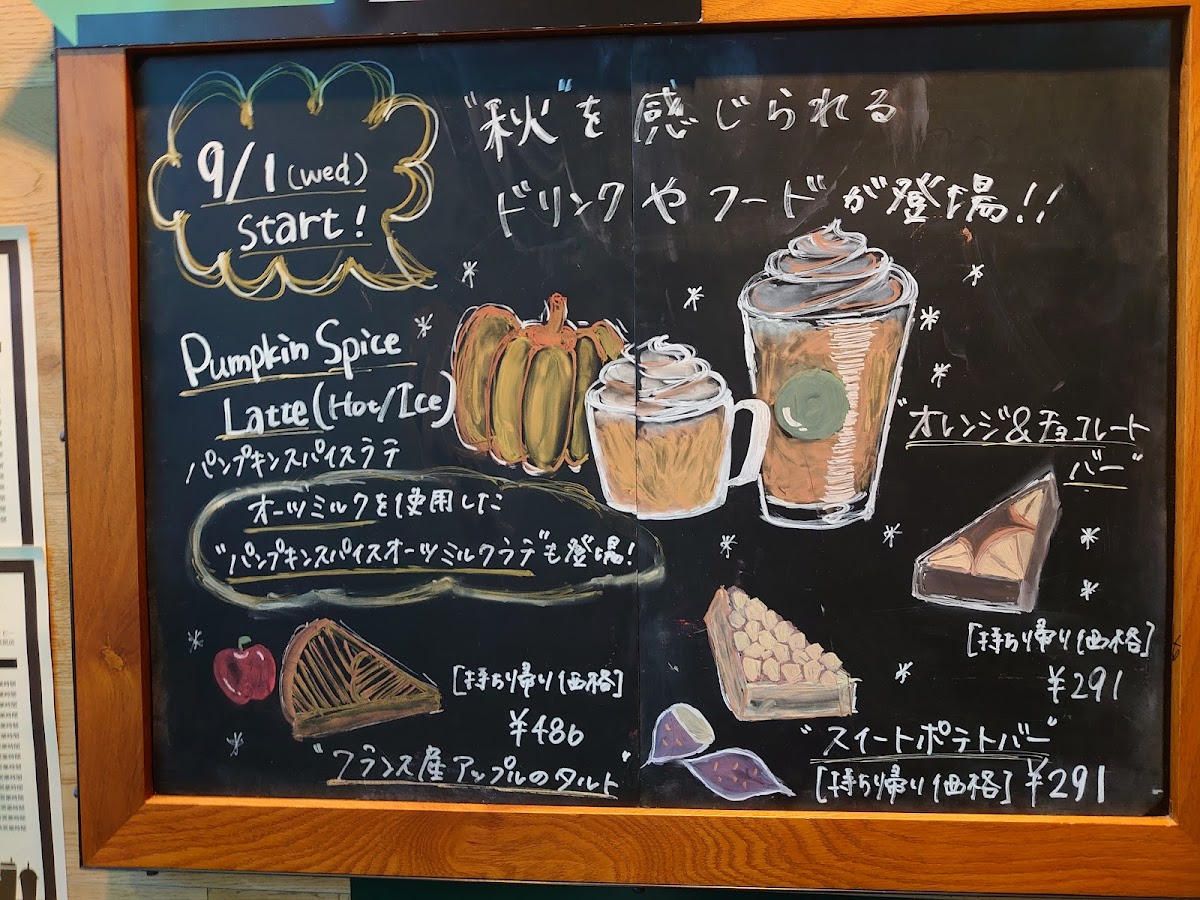 9/1 (wed)
start!
"秋"を感じられる
ドリンクやフードが登場!!
Pumpkin Spice
Latte (Hot/Ice)
パンプキンスパイスラテ
オーツミルクを使用した
"パンプキンスパイスオーツミルクラテ"も登場!
"オレンジ&チョコレート
バー"
[持ち帰り価格]
¥291
[持ち帰り価格]
¥486
"フランス産アップルのタルト"
"スイートポテトバー"
[持ち帰り価格] ¥291